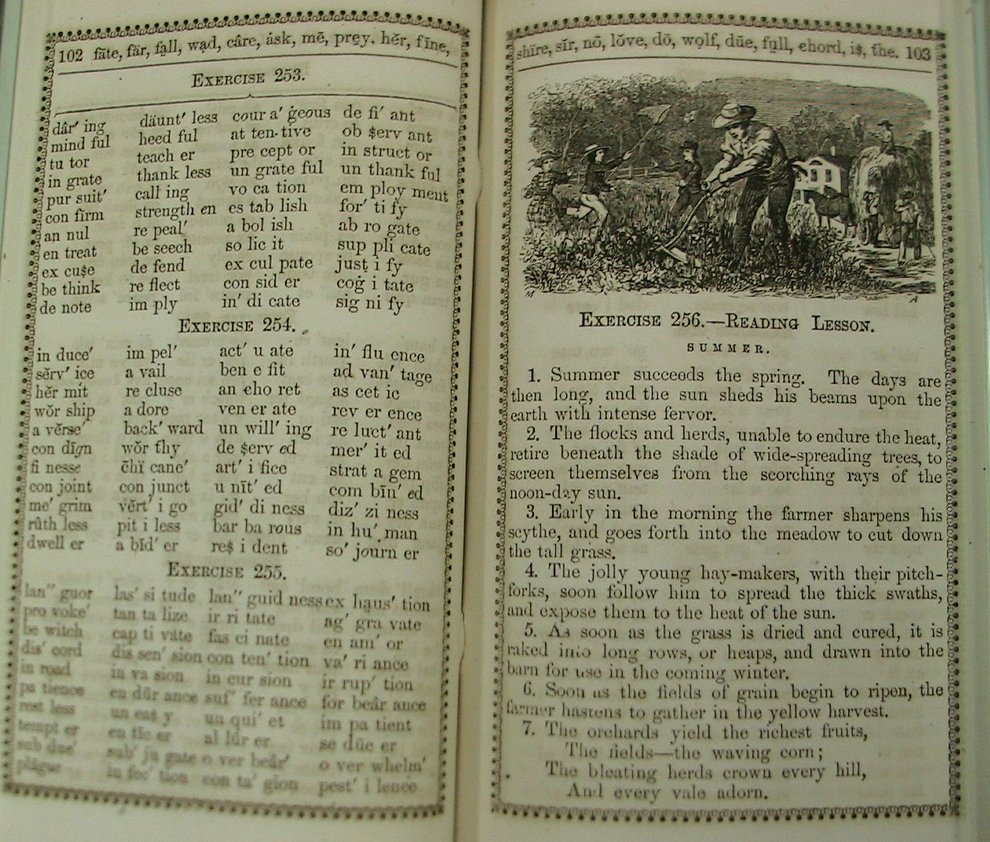 102 fāte, fär, fạll, wad, câre, ȧsk, mē, prey, hẽr, fīne,
EXERCISE 253.
dâr' ing däunt' less cour a' ġeous de fī' ant
mind ful heed ful at ten-tive ob ṣerv ant
tu tor teach er pre cept or in struct or
in grate thank less un grate ful un thank ful
pur suit' call ing vo ca tion em ploy ment
con firm strength en es tab lish for' ti fy
an nul re peal' a bol ish ab ro gate
en treat be seech so lic it sup pli cate
ex cuṣe de fend ex cul pate just i fy
be think re flect con sid er coġ i tate
de note im ply in' di cate sig ni fy
EXERCISE 254.
in duce' im pel' act' u ate in' flu ence
sẽrv' ice a vail ben e fit ad van' tage
hẽr mit re cluse an cho ret as cet ic
wõr ship a dore ven er ate rev er ence
a vẽrse' back' ward un will' ing re luct' ant
con dīgn wõr thy de ṣerv ed mer' it ed
fi nesse çhi cane' art' i fice strat a gem
con joint con junct u nīt' ed com bīn' ed
me' grim vẽrt' i go gid' di ness diz' zi ness
rûth less pit i less bar ba rous in hu' man
dwell er a bīd' er reṣ i dent so' journ er
EXERCISE 255.
lan" guor las' si tude lan" guid ness ex haus' tion
pro voke' tan ta lize ir ri tate ag' gra vate
be witch cap ti vate fas ci nate en am' or
dis' cord dis sen' sion con ten' tion va' ri ance
in road in va sion in cur sion ir rup' tion
pa tience en dūr ance suf' fer ance for beâr ance
rest less un eaṣ y un qui' et im pa tient
tempt er en tīc er al lūr er se dūc er
sub due' sub' ju gate o ver beâr' o ver whelm'
plāgue in fec' tion con ta' gion pest' i lence
shīre, sīr, nō, lòve, dö, wolf, dūe, fụll, chord, iṣ, the. 103
EXERCISE 256.—READING LESSON.
SUMMER.
1. Summer succeeds the spring. The days are
then long, and the sun sheds his beams upon the
earth with intense fervor.
2. The flocks and herds, unable to endure the heat,
retire beneath the shade of wide-spreading trees, to
screen themselves from the scorching rays of the
noon-day sun.
3. Early in the morning the farmer sharpens his
scythe, and goes forth into the meadow to cut down
the tall grass.
4. The jolly young hay-makers, with their pitch-
forks, soon follow him to spread the thick swaths,
and expose them to the heat of the sun.
5. As soon as the grass is dried and cured, it is
raked into long rows, or heaps, and drawn into the
barn for use in the coming winter.
6. Soon as the fields of grain begin to ripen, the
farmer hastens to gather in the yellow harvest.
7. The orchards yield the richest fruits,
The fields—the waving corn;
The bleating herds crown every hill,
And every vale adorn.